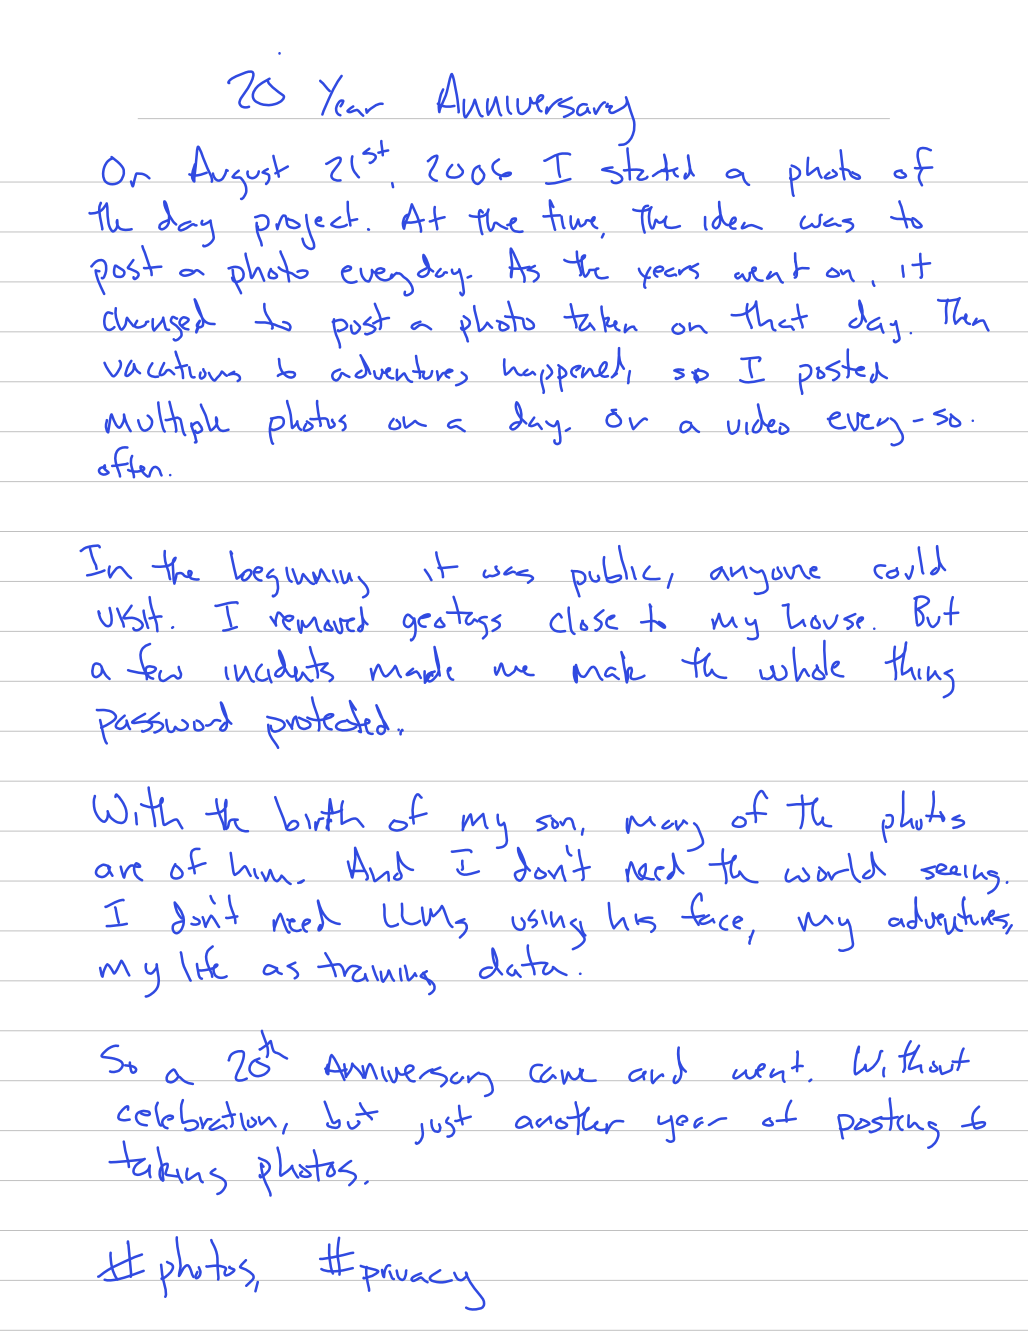 20 Year Anniversary
On August 21st, 2006 I started a photo of
the day project. At the time, the idea was to
post a photo everyday. As the years went on, it
changed to post a photo taken on that day. Then
vacations & adventures happened, so I posted
multiple photos on a day. Or a video every-so-
often.
In the beginning it was public, anyone could
visit. I removed geotags close to my house. But
a few incidents made me make the whole thing
password protected.
With the birth of my son, many of the photos
are of him. And I don't need the world seeing.
I don't need LLMs using his face, my adventures,
my life as training data.
So a 20th Anniversary came and went. Without
celebration, but just another year of posting &
taking photos.
#photos, #privacy